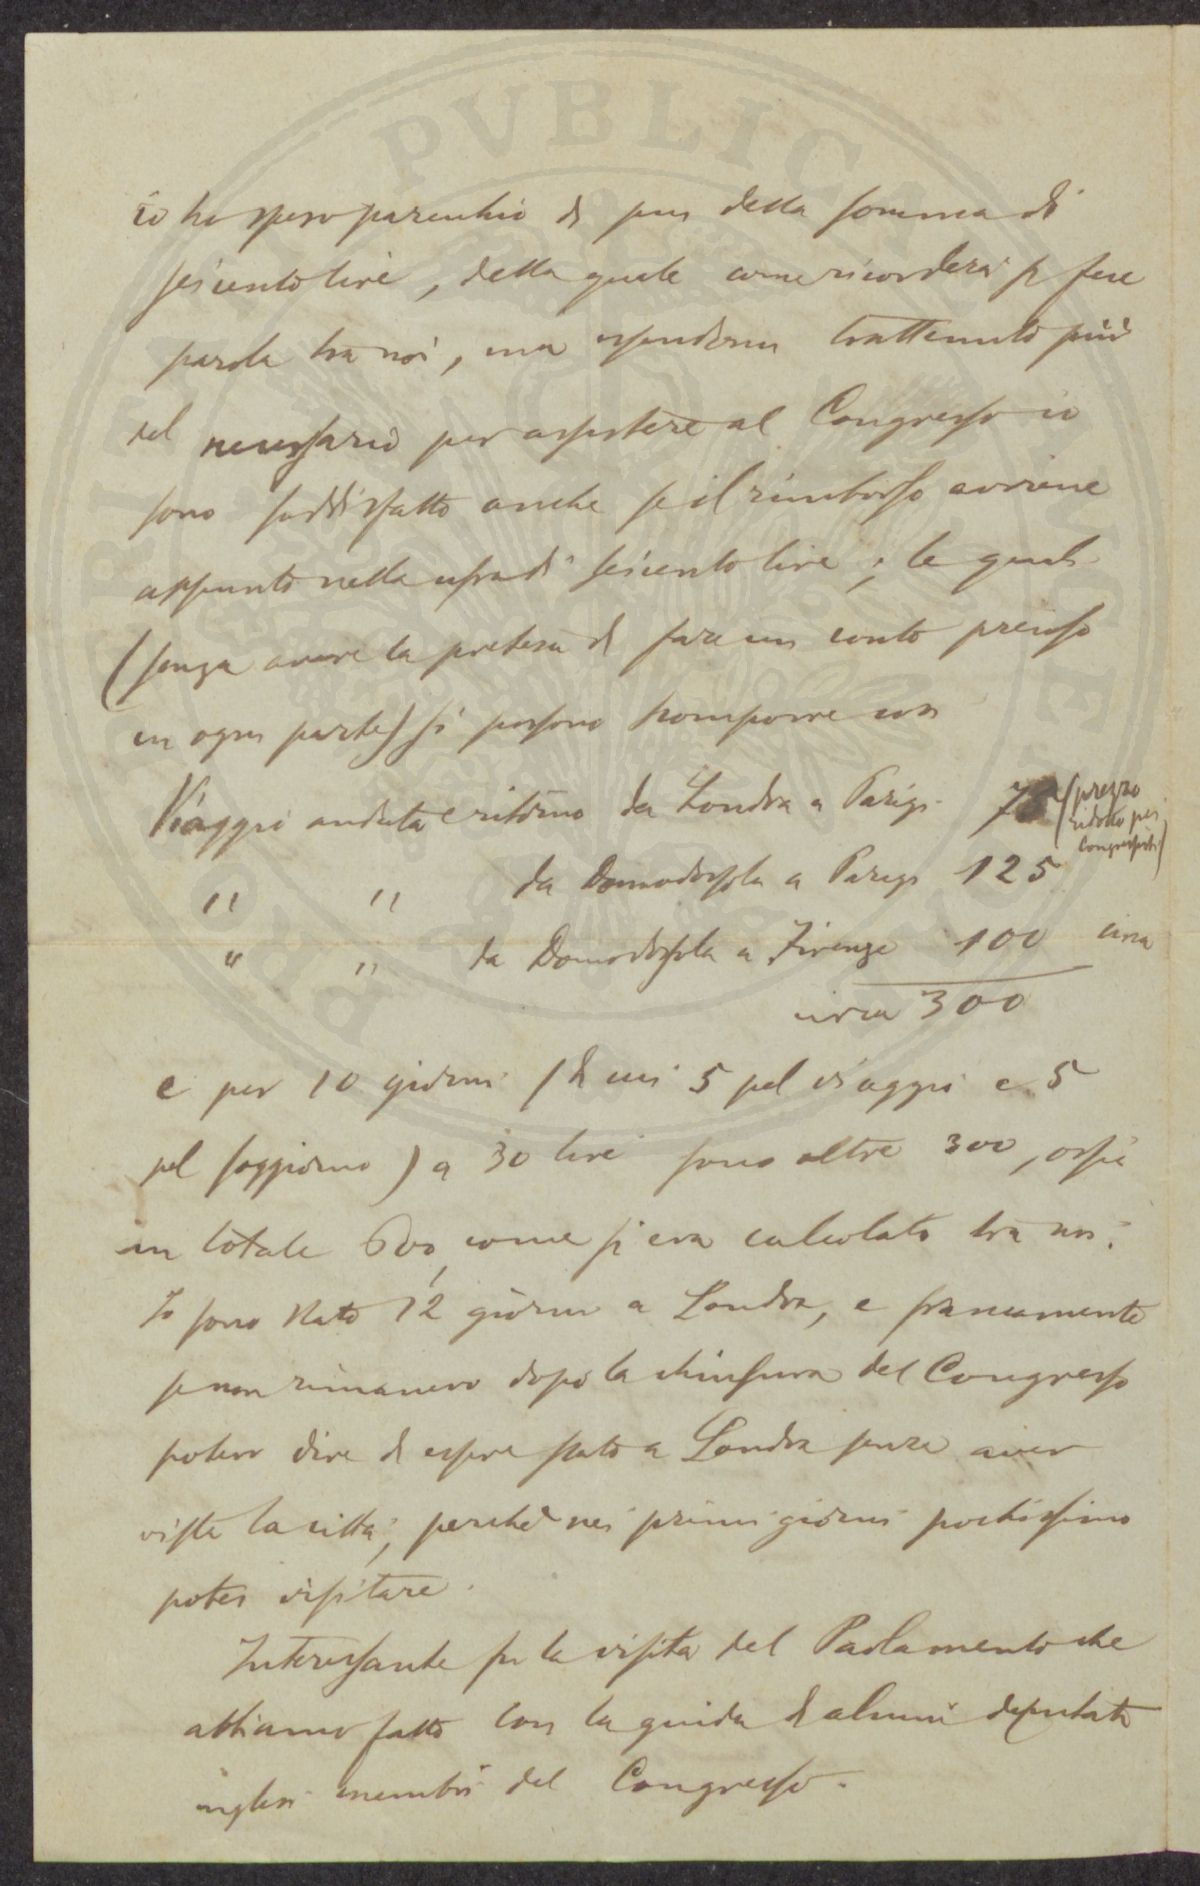 io ho speso parecchio di più della somma di
seicento lire, della quale come ricorderai si fece
parola tra noi, ma essendomi trattenuto più
del necessario per assistere al Congresso io
sono soddisfatto anche se il rimborso avviene
appunto nella misura di seicento lire; le quali
(senza avere la pretesa di fare un conto preciso
in ogni parte) si possono scomporre così
Viaggio andata e ritorno da Londra a Parigi 78 (prezzo
ridotto pei
Congressisti)
" " da Domodossola a Parigi 125
" " da Domodossola a Firenze 100 circa
circa 300
e per 10 giorni (di cui 5 pel viaggio e 5
pel soggiorno) a 30 lire sono altre 300, ossia
in totale 600, come si era calcolato tra noi.
Io sono stato 12 giorni a Londra, e francamente
se non rimanevo dopo la chiusura del Congresso
potevo dire di essere stato a Londra senza aver
vista la città, perché nei primi giorni pochissimo
potei visitare.
Interessante fu la visita del Parlamento che
abbiamo fatto con la guida di alcuni deputati
inglesi membri del Congresso.